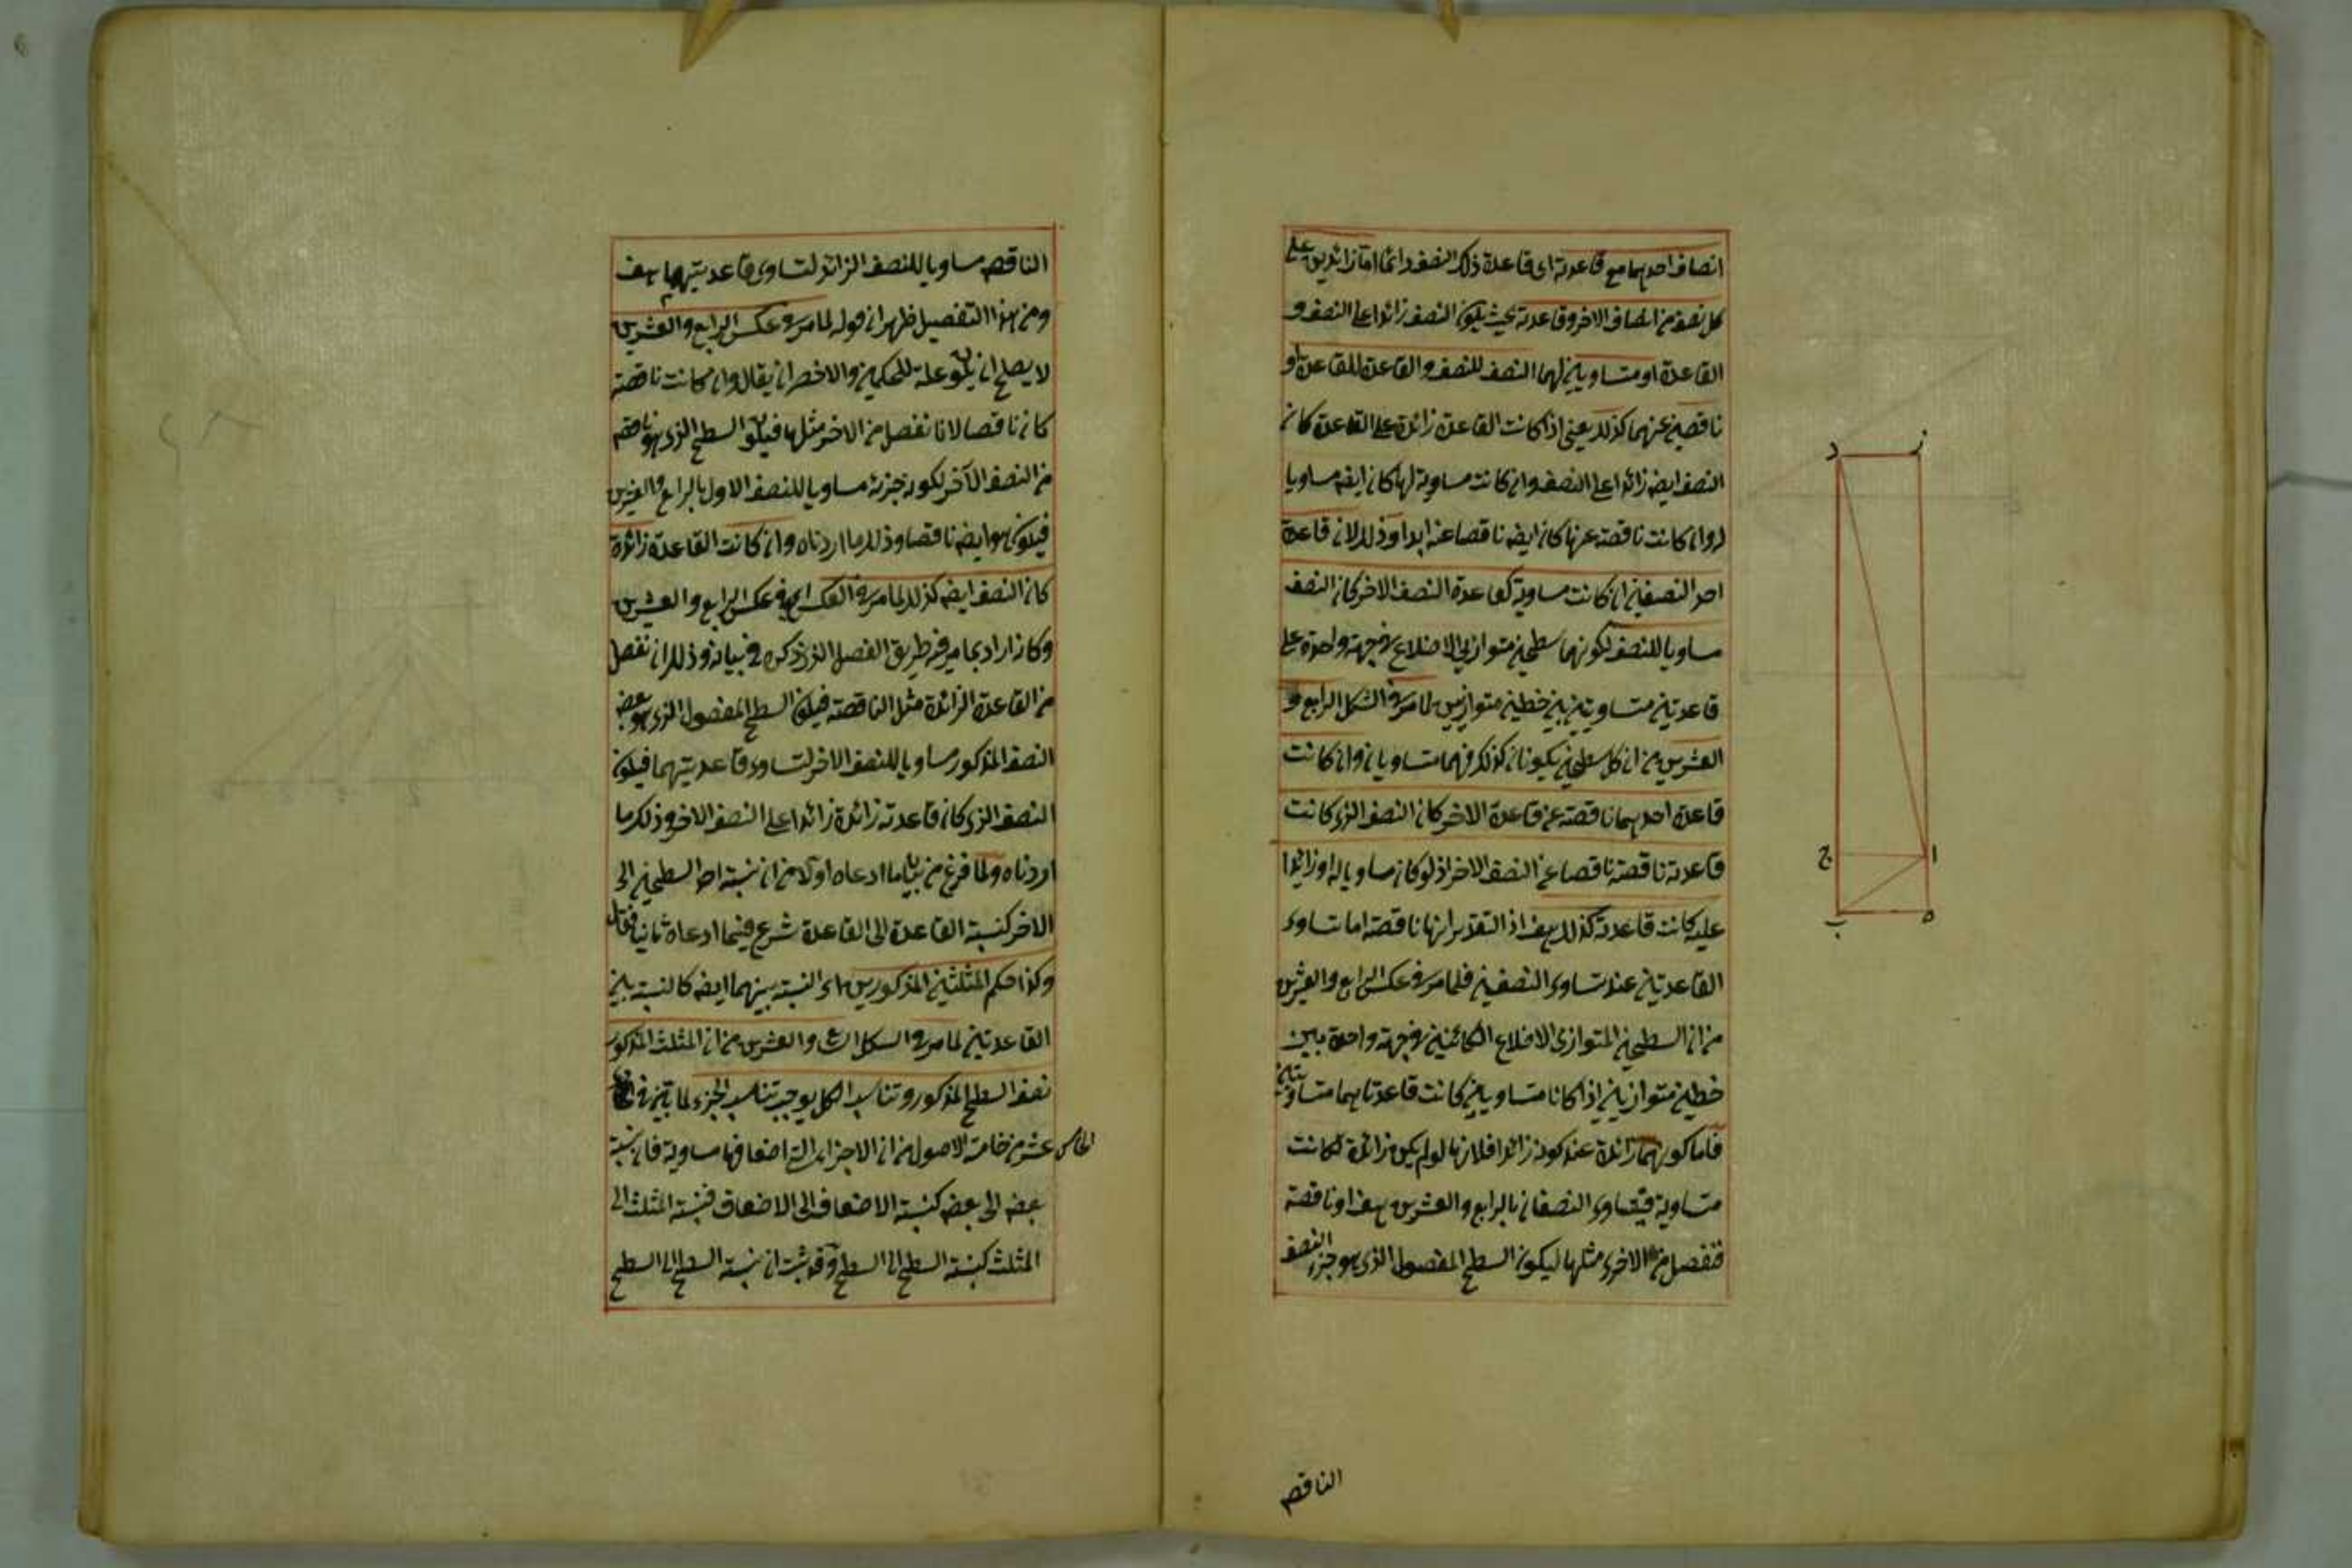 انصاف احدهما مع قاعدته اى قاعدة ذلك النصف دائما اما زائدين على
كل نصف من انصاف الاخر وقاعدته بحيث يكون النصف زائدا على النصف و
القاعدة او متساويين لهما النصف للنصف والقاعدة للقاعدة او
ناقصين عنهما كذلك يعنى اذا كانت القاعدة زائدة على القاعدة كان
النصف ايضه زائدا على النصف وان كانت مساوية لها كان ايضه مساويا
له وان كانت ناقصة عنها كان ايضه ناقصا عنه ابدا وذلك لان قاعدة
احد النصفين ان كانت مساوية كقاعدة النصف الاخر كان النصف
مساويا للنصف لكونهما سطحين متوازيى الاضلاع فى جهة واحدة على
قاعدتين متساويتين بين خطين متوازيين لما مر فى الشكل الرابع و
العشرين من ان كل سطحين يكونان كذلك فهما متساويان وان كانت
قاعدة احدهما ناقصة عن قاعدة الاخر كان النصف الذى كانت
قاعدته ناقصة ناقصا عن النصف الاخر اذ لو كان مساويا له او زائدا
عليه كانت قاعدته كذلك هف اذ التقدير انها ناقصة اما تساوى
القاعدتين عند تساوى النصفين فلما مر فى عكس الرابع والعشرين
من ان السطحين المتوازى الاضلاع الكائنين فى جهة واحدة بين
خطين متوازيين اذا كانا متساويين كانت قاعدتاهما متساويتين
فاما كونهما زائدة عند كونه زائدا فلانها لو لم يكن زائدة لكانت
متساوية فيتساوى النصفان بالرابع والعشرين هف او ناقصة
فنفصل من الاخرى مثلها ليكون السطح المفصول الذى هو جزء النصف
الناقص
د ز
ج ا
ب ه
الناقص مساويا للنصف الزائد لتساوى قاعدتيهما هف
ومن هذا التفصيل ظهر ان قوله لما مر فى عكس الرابع والعشرين
لا يصلح ان يكون علة للحكمين والاخصر ان يقال وان كانت ناقصة
كان ناقصا لانا نفصل من الاخر مثلها فيكون السطح الذى هو ناقص
من النصف الآخر لكونه جزئه مساويا للنصف الاول بالرابع والعشرين
فيكون هو ايضه ناقصا وذلك ما اردناه وان كانت القاعدة زائدة
كان النصف ايضه كذلك لما مر فى العكس اى فى عكس الرابع والعشرين
وكانه اراد بما مر فيه طريق الفصل الذى ذكره فى بيانه وذلك ان نفصل
من القاعدة الزائدة مثل الناقصة فيكون السطح المفصول الذى هو بعض
النصف المذكور مساويا للنصف الاخر لتساوى قاعدتيهما فيكون
النصف الذى كان قاعدته زائدة زائدا على النصف الاخر وذلك ما
اردناه ولما فرغ من بيان ما ادعاه اولا من ان نسبة احد السطحين الى
الاخر كنسبة القاعدة الى القاعدة شرع فيما ادعاه ثانيا فقال
وكذا حكم المثلثين المذكورين اى النسبة بينهما ايضه كالنسبة بين
القاعدتين لما مر فى الشكل والعشرين من ان المثلث المذكور
نصف السطح المذكور وتناسب الكل يوجب تناسب الجزء لما تبين فى
الخامس عشر من خامسة الاصول من ان الاجزاء التى اضعافها مساوية فان نسبة
بعض الى بعض كنسبة الاضعاف الى الاضعاف فنسبة المثلث الى
المثلث كنسبة السطح الى السطح وقد ثبت ان نسبة السطح الى السطح